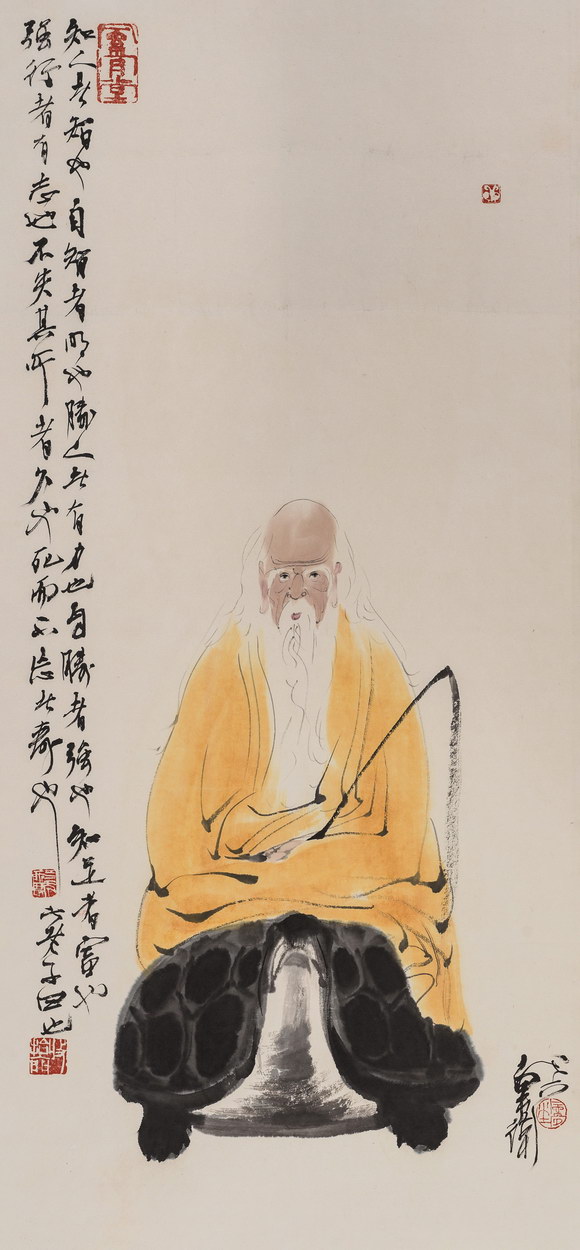 知人者智也自智者明也勝人者有力也自勝者強也知足者富也
强行者有志也不失其所者久也死而不忘者壽也
老子